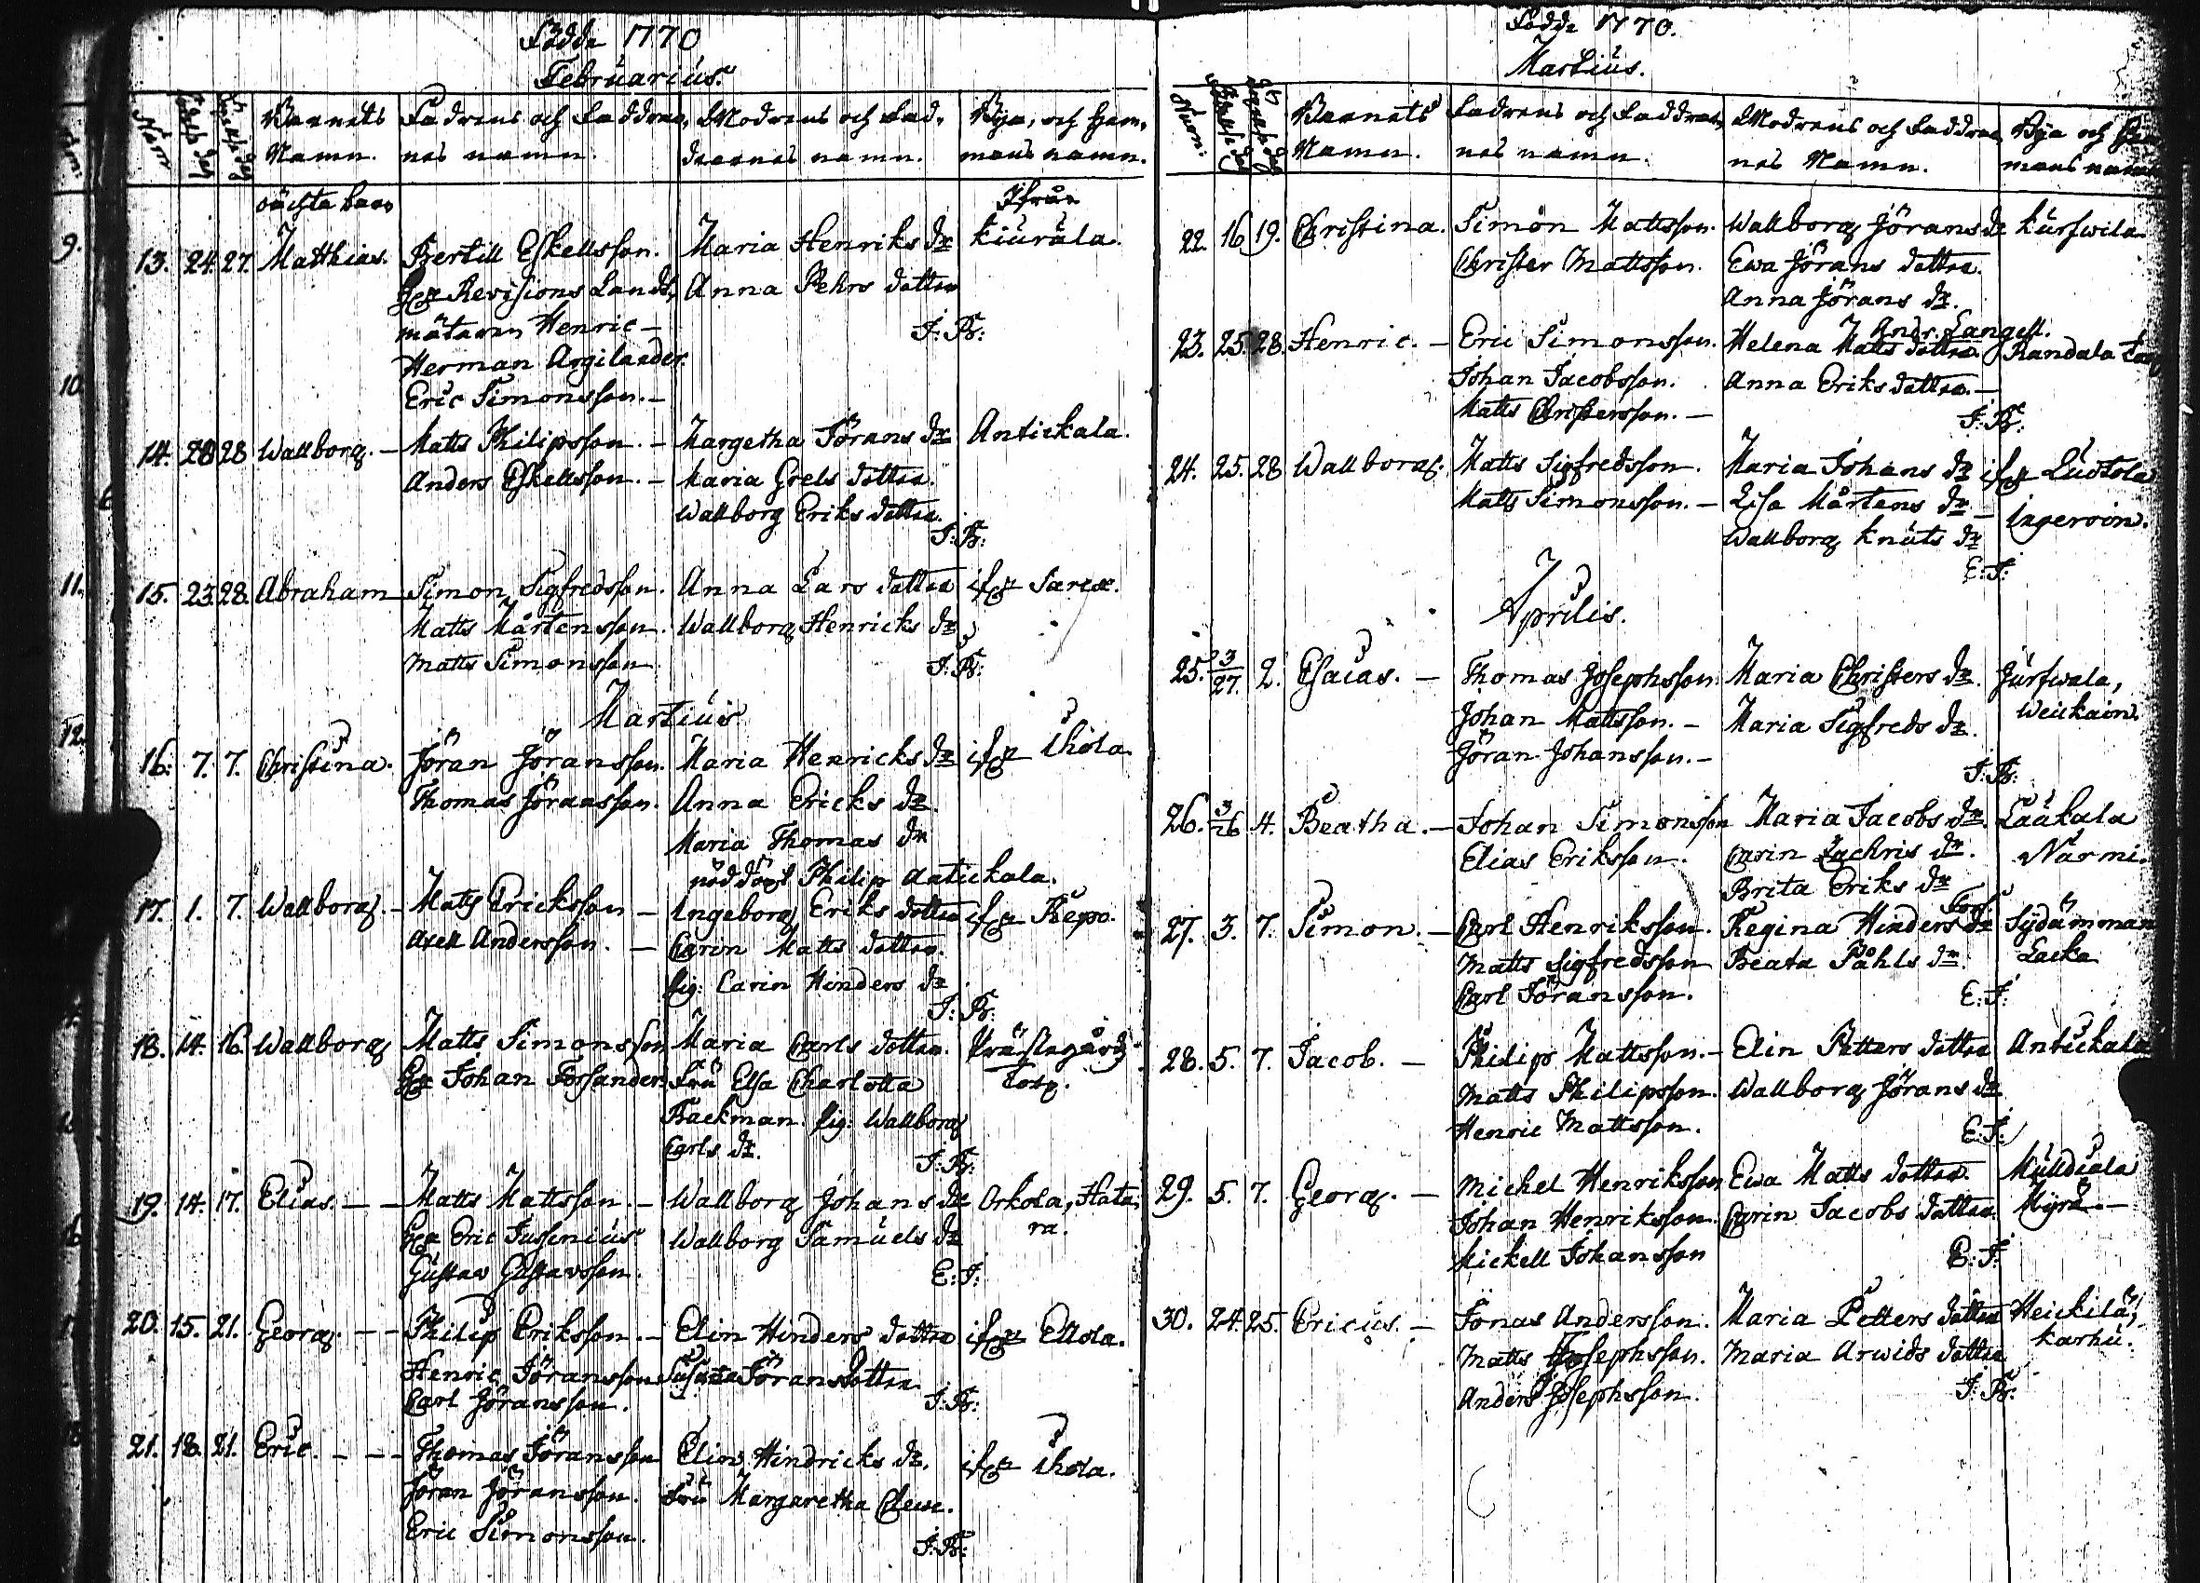 Födde 1770
Februarius.
Num
Barnets Namn.
Fadrens och Faddrar, nes namn.
Modrens och Fad, drarnes namn.
Bya, och Hem, mans namn.
oächta barn
Ifrån
13. 24. 27. Matthias. Bertill Eskellsson. Maria Henriks dr Kiurala.
Hr Revisions Landt, Anna Pehrs dotter
mätaren Henric – I: B:
Herman Argilander.
Eric Simonsson. –
14. 28 28 Wallborg. – Matts Philipsson. – Margetha Jörans dr Antickala.
Anders Eskellsson. – Maria Grels dotter.
Wallborg Eriks dotter.
I: B:
15. 23. 28. Abraham Simon Sigfredsson. Anna Lars dotter ifr Sarca.
Matts Mårtensson. Wallborg Henricks dr
Matts Simonsson I: B:
Martius
16. 7. 7. Christina. Jöran Jöransson. Maria Henricks dr ifr Uhola
Thomas Jöransson. Anna Ericks dr.
Maria Thomas dr
nöddöpt Philip Antickala.
17. 1. 7. Wallborg. – Mats Ericksson – Ingeborg Eriks dotter ifr Repo.
Axell Andersson. – Carin Matts dotter.
pig: Carin Hinders dr
I: B:
18. 14. 16. Wallborg Matts Simonsson Maria Carls dotter. Prästegårds
Hr Johan Forsander. Fru Elsa Charlotta Torp.
Backman. pig: Wallborg
Carls dr.
I: B:
19. 14. 17. Elias. – – Matts Mattsson. – Wallborg Johans dr Orkola, Hata,
Hr Eric Jusenius Wallborg Samuels dr ra.
Gustav Gustavsson. E: I:
20. 15. 21. Georg. – – Philip Eriksson. – Elin Hinders dotter ifr Ellola.
Henric Jöransson Susana Jöransdotter
Carl Jöransson. I: B:
21. 18. 21. Eric. – – Thomas Jöransson Elin Hindricks dr. ifr Uhola.
Jöran Jöransson. Fru Margaretha Cleve.
Eric Simonsson. I: B:
Födde 1770.
Martius.
Num:
Barnets Namn.
Fadrens och Faddrar, nes namn.
Modrens och Faddrar, nes Namn.
Bya och Hem mans namn
22. 16 19. Christina. Simon Mattsson. Wallborg Jörans dr Kurswila.
Christer Mattsson. Ewa Jörans dotter.
Anna Jörans dr.
Andr. Langell.
23. 25. 28. Henric. – Eric Simonsson. Helena Matts dotter. Randala Torp
Johan Jacobsson. Anna Eriks dotter. –
Matts Christersson. – I: B:
24. 25. 28 Wallborg. Matts Sigfredsson. Maria Johans dr ifr Ludtola
Matts Simonsson. – Lisa Mårtens dr – Ingeroin.
Wallborg Knuts dr
E: I:
Aprilis.
25. 3/27. 2. Esaias. – Thomas Josephsson. Maria Christers dr. Jurfwala,
Johan Mattsson. – Maria Sigfreds dr. Weickain.
Jöran Johansson. –
I: B:
26. 3/26 4. Beatha. – Johan Simonsson Maria Jacobs dr. Laakala
Elias Eriksson. Carin Zachris dr. Närmi.
Brita Eriks dr
27. 3. 7. Simon. – Carl Henriksson. Regina Hinders dr Sydänman
Matts Sigfredsson Beata Påhls dr. Lacka
Carl Jöransson. E: I:
28. 5. 7. Jacob. – Philips Mattsson. – Elin Petters dotter Antickala
Matts Philipsson. Wallborg Jörans dr
Henric Mattsson. E: I:
29. 5. 7. Georg. – Michel Henriksson Ewa Matts dotter. Mulldiala
Johan Henriksson. Carin Jacobs dotter. Myrä. –
Mickell Johansson E: I:
30. 24. 25. Ericus. – Jonas Andersson. Maria Petters dotter Heickilä,
Matts Josephsson. Maria Arwids dotter Karhu.
Anders Josephsson. I: B: